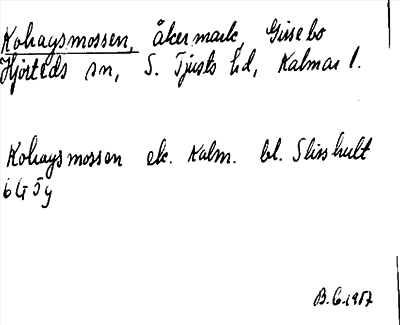 Kohagsmossen, åkermark, Girsebo
Hjorteds sn, S. Tjusts hd, Kalmar l.
Kohagsmossen ek. Kalm. bl. Slisshult
6G 5g
B.G. 1957